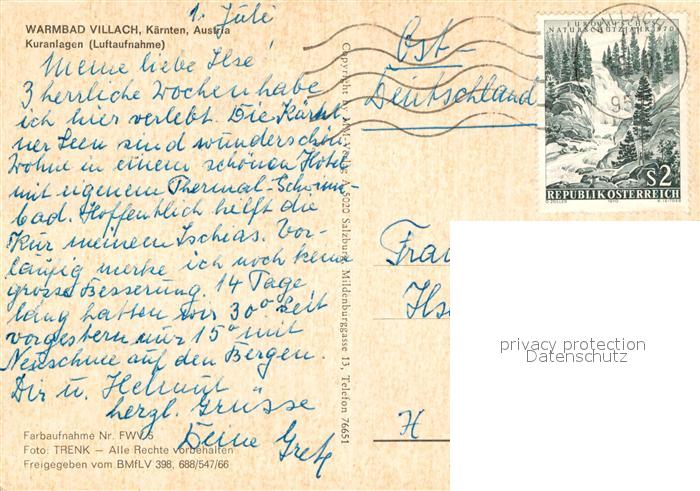 WARMBAD VILLACH, Kärnten, Austria
Kuranlagen (Luftaufnahme)
1. Juli
Meine liebe Ilse!
3 herrliche Wochen habe
ich hier verlebt. Die Kärnt-
ner Seen sind wunderschön.
Wohne in einem schönen Hotel
mit eigenem Thermal-Schwimm-
bad. Hoffentlich hilft die
Kur meinem Ischias. Vor-
läufig merke ich noch keine
grosse Besserung. 14 Tage
lang hatten wir 30° seit
vorgestern nur 15° mit
Neuschnee auf den Bergen.
Dir u. Helmut
herzl. Grüsse
Deine Grete
Farbaufnahme Nr. FWV 5
Foto: TRENK — Alle Rechte vorbehalten
Freigegeben vom BMfLV 398, 688/547/66
Copyright by Verlag A 5020 Salzburg, Mildenburggasse 13, Telefon 76651
Ost-
Deutschland
EUROPÄISCHES
NATURSCHUTZJAHR 1970
S 2
REPUBLIK ÖSTERREICH
1970
95
Frau
Ils
H
privacy protection
Datenschutz